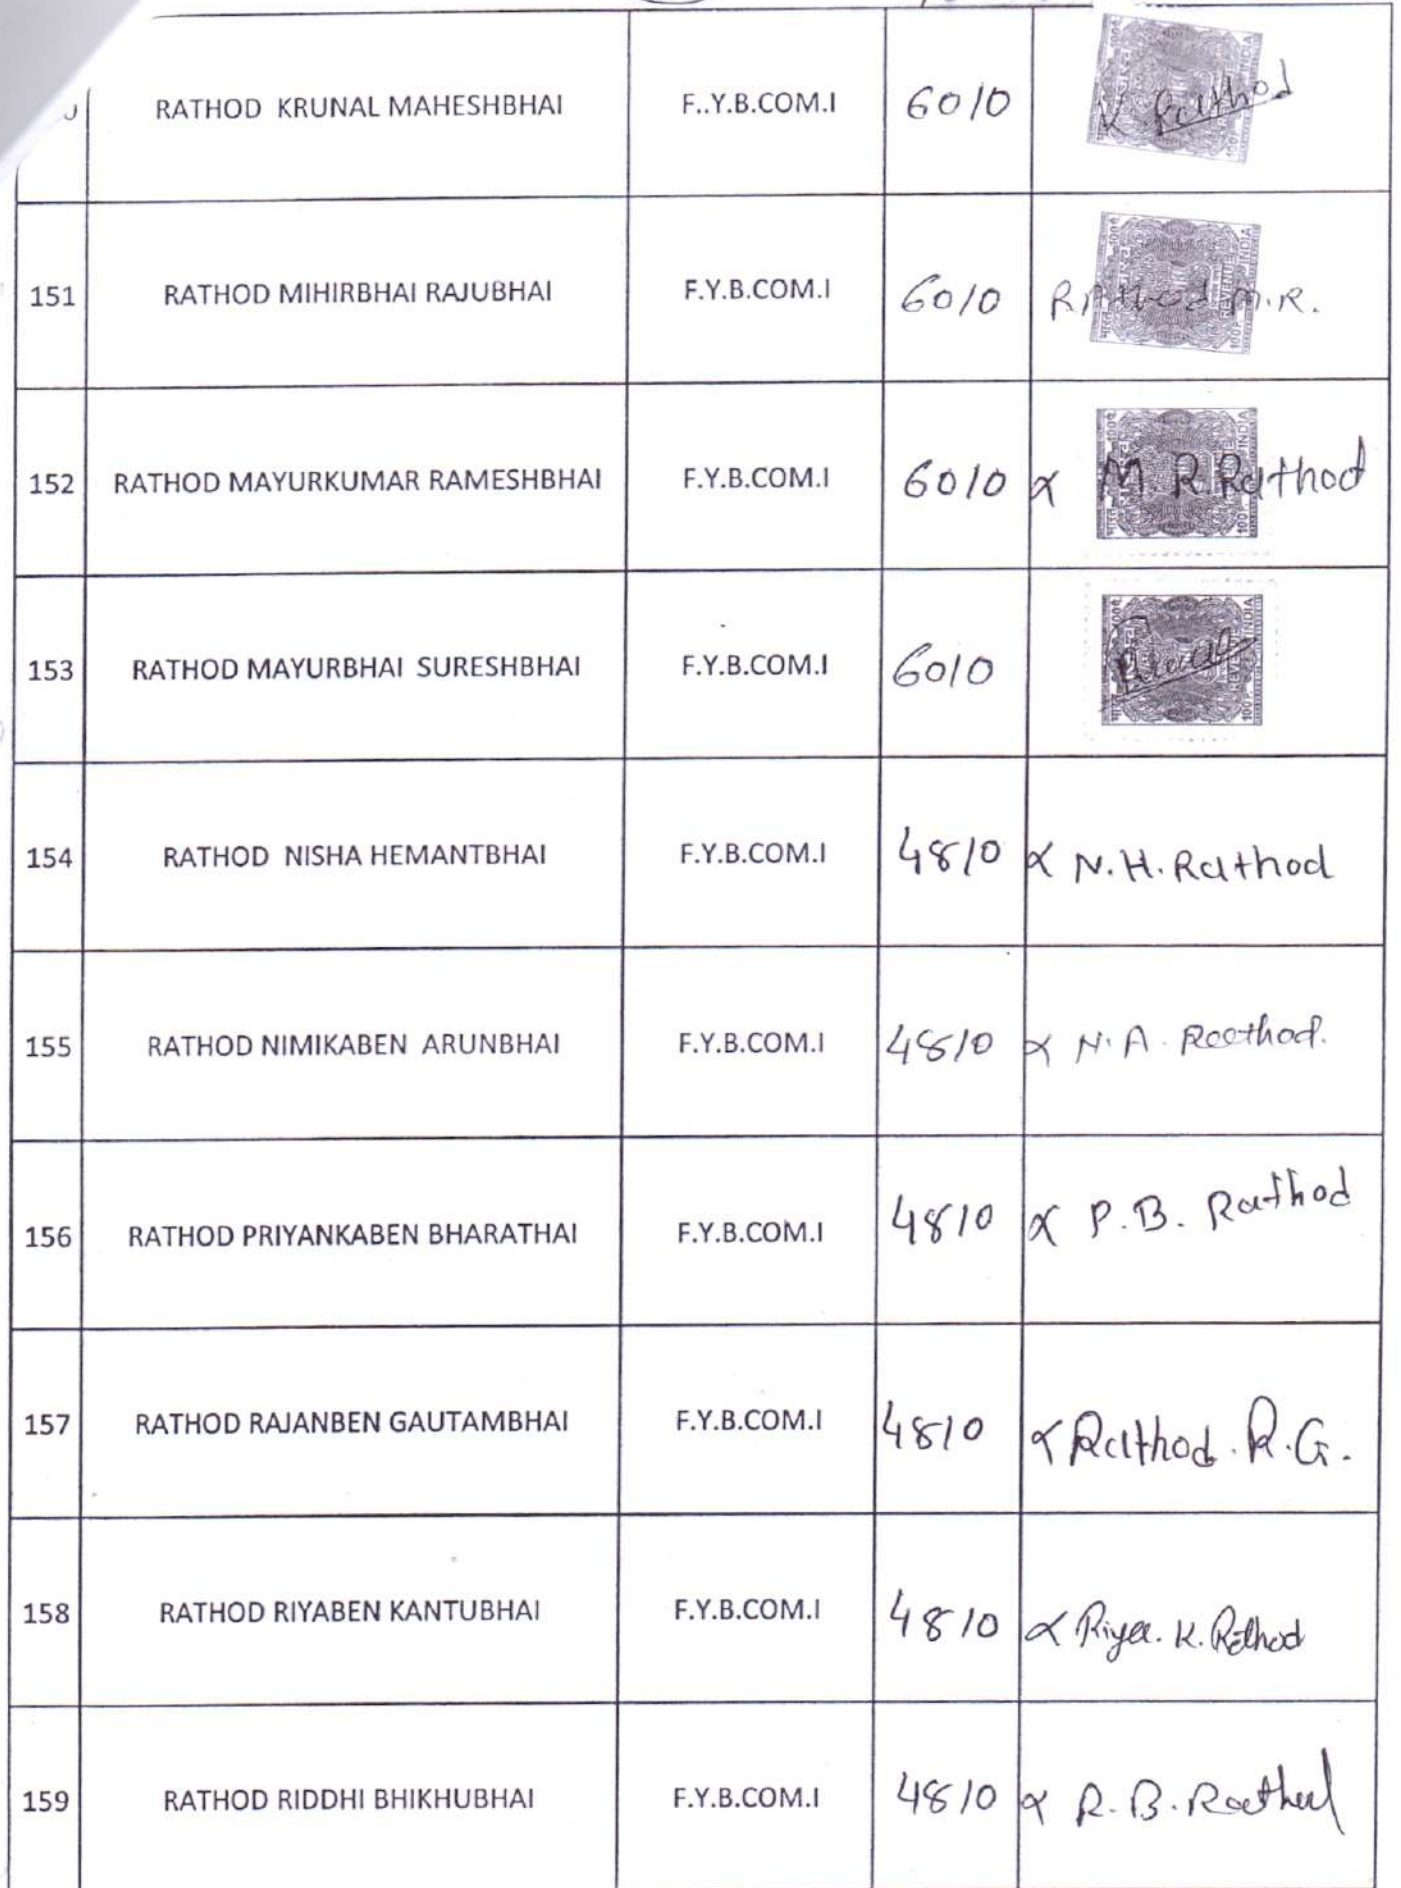 RATHOD KRUNAL MAHESHBHAI F..Y.B.COM.I 6010 K. Rathod
151 RATHOD MIHIRBHAI RAJUBHAI F.Y.B.COM.I 6010 Rathod M.R.
152 RATHOD MAYURKUMAR RAMESHBHAI F.Y.B.COM.I 6010 x M R. Rathod
153 RATHOD MAYURBHAI SURESHBHAI F.Y.B.COM.I 6010
154 RATHOD NISHA HEMANTBHAI F.Y.B.COM.I 4810 x N.H. Rathod
155 RATHOD NIMIKABEN ARUNBHAI F.Y.B.COM.I 4810 x N.A. Rathod.
156 RATHOD PRIYANKABEN BHARATHAI F.Y.B.COM.I 4810 x P.B. Rathod
157 RATHOD RAJANBEN GAUTAMBHAI F.Y.B.COM.I 4810 x Rathod. R.G.
158 RATHOD RIYABEN KANTUBHAI F.Y.B.COM.I 4810 x Riya. K. Rathod
159 RATHOD RIDDHI BHIKHUBHAI F.Y.B.COM.I 4810 x R.B. Rathod